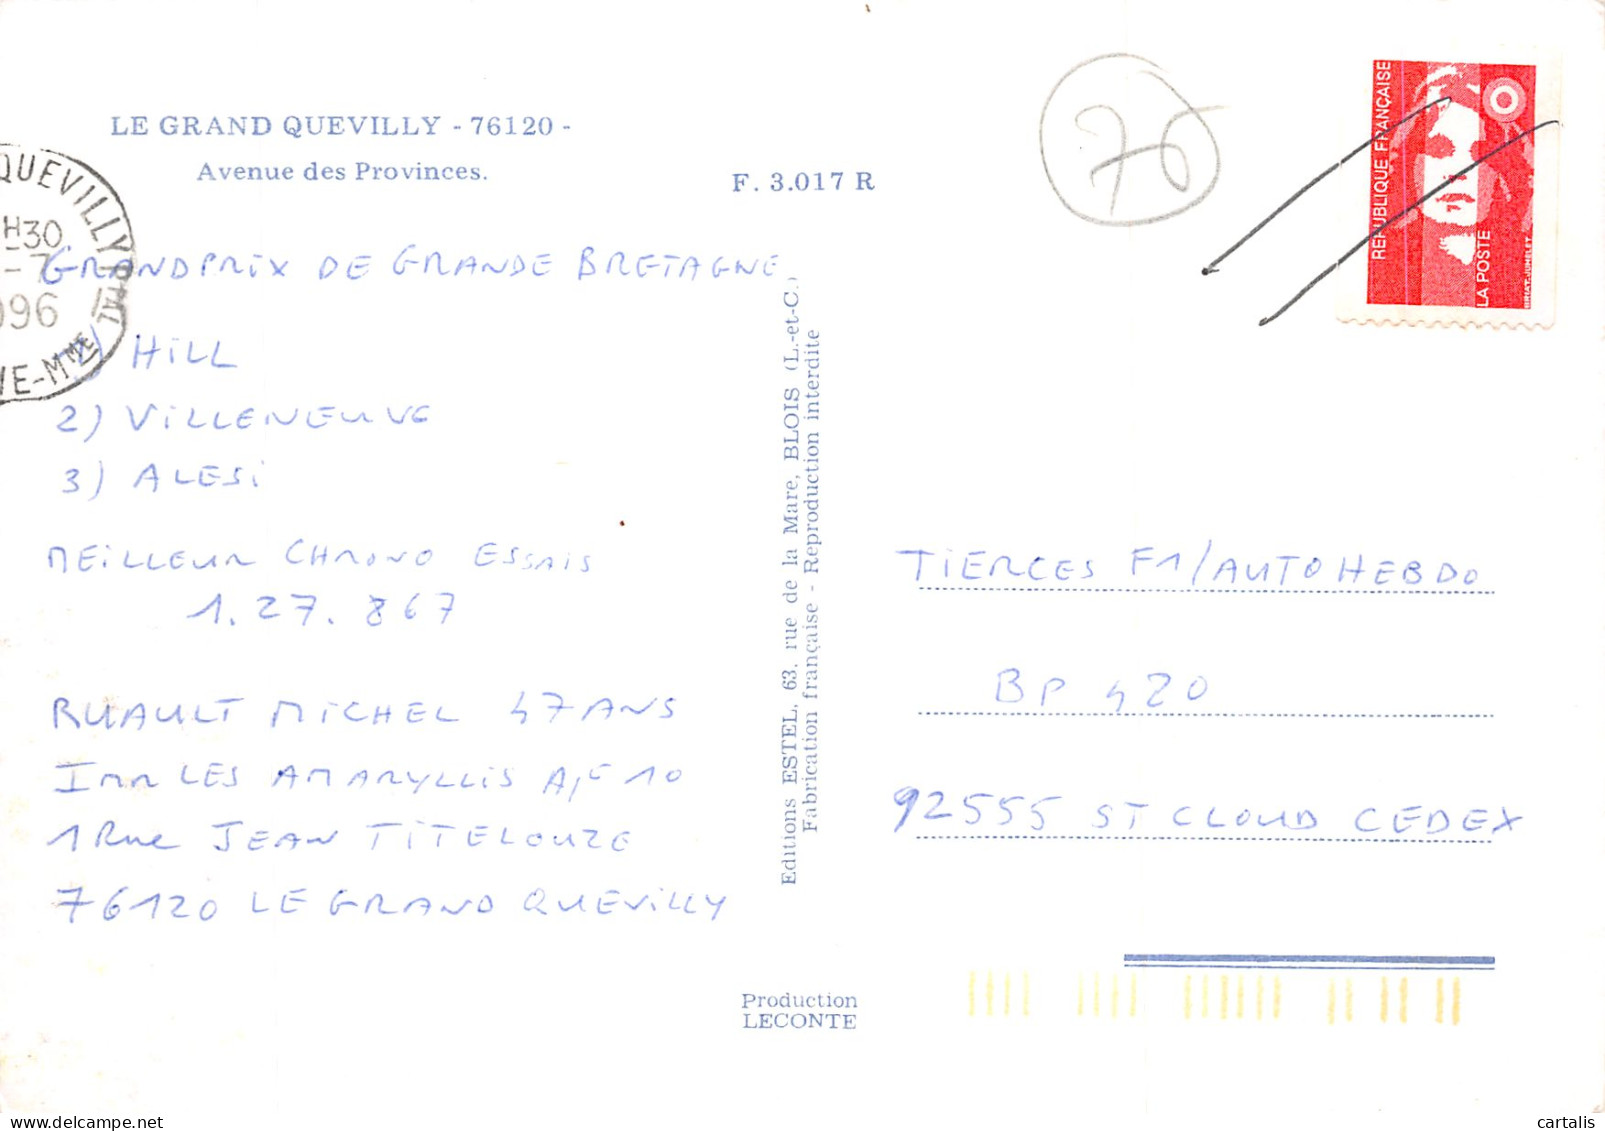 LE GRAND QUEVILLY - 76120 -
Avenue des Provinces.
F. 3.017 R
QUEVILLY PPAL
H30
-7
96
-MME
GRAND PRIX DE GRANDE BRETAGNE
1) HiLL
2) ViLLENEUVE
3) ALESi
MEiLLEUR CHRONO ESSAIS
1.27.867
RUAULT MICHEL 47 ANS
IMM LES AMARYLLIS
1 Rue JEAN TITELOUZE
76120 LE GRAND QUEViLLY
Editions ESTEL, 63, rue de la Mare, BLOIS (L.-et-C.)
Fabrication française - Reproduction interdite
Production
LECONTE
76
REPUBLIQUE FRANÇAISE
LA POSTE
BRIAT-JUMELET
TiERCES F1/AUTOHEBDO
BP 420
92555 ST CLOUD CEDEX
cartalis